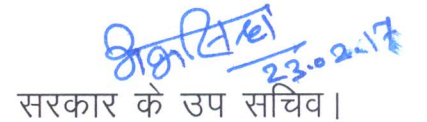 23.02.17
सरकार के उप सचिव।